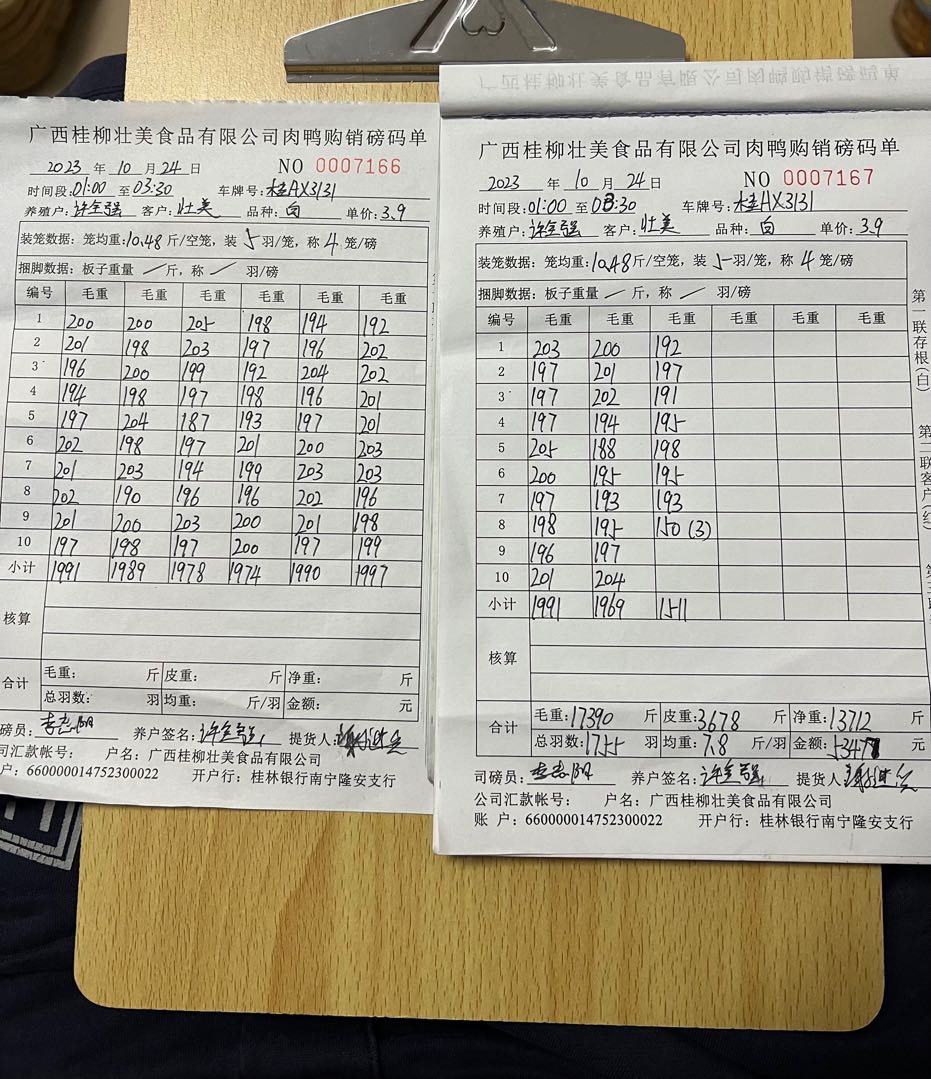 广西桂柳壮美食品有限公司肉鸭购销磅码单
2023 年 10 月 24 日 NO 0007166
时间段:01:00 至 03:30 车牌号:桂AX3131
养殖户: 许全强 客户: 壮美 品种: 白 单价:3.9
装笼数据: 笼均重:10.48 斤/空笼, 装 5 羽/笼, 称 4 笼/磅
捆脚数据: 板子重量 / 斤, 称 / 羽/磅
编号 毛重 毛重 毛重 毛重 毛重 毛重
1 200 200 205 198 194 192
2 201 198 203 197 196 202
3 196 200 199 192 204 202
4 194 198 197 198 196 201
5 197 204 187 193 197 201
6 202 198 197 201 200 203
7 201 203 194 199 203 203
8 202 190 196 196 202 196
9 201 200 203 200 201 198
10 197 198 197 200 197 199
小计 1991 1989 1978 1974 1990 1997
核算
合计 毛重: 斤 皮重: 斤 净重: 斤
总羽数: 羽 均重: 斤/羽 金额: 元
磅员: 养户签名: 许全强 提货人:
司汇款帐号: 户名: 广西桂柳壮美食品有限公司
户: 660000014752300022 开户行: 桂林银行南宁隆安支行
广西桂柳壮美食品有限公司肉鸭购销磅码单
广西桂柳壮美食品有限公司肉鸭购销磅码单
2023 年 10 月 24 日 NO 0007167
时间段:01:00 至 03:30 车牌号:桂AX3131
养殖户: 许全强 客户: 壮美 品种: 白 单价: 3.9
装笼数据: 笼均重:10.48 斤/空笼, 装 5 羽/笼, 称 4 笼/磅
捆脚数据: 板子重量 / 斤, 称 / 羽/磅
编号 毛重 毛重 毛重 毛重 毛重 毛重
1 203 200 192
2 197 201 197
3 197 202 191
4 197 194 195
5 205 188 198
6 200 195 195
7 197 193 193
8 198 195 150 (3)
9 196 197
10 201 204
小计 1991 1969 1511
核算
合计 毛重:17390 斤 皮重:3678 斤 净重:13712 斤
总羽数:1755 羽 均重: 7.8 斤/羽 金额: 元
司磅员: 养户签名: 许全强 提货人:
公司汇款帐号: 户名: 广西桂柳壮美食品有限公司
账 户: 660000014752300022 开户行: 桂林银行南宁隆安支行
第一联存根(白) 第二联客户(红) 第三联